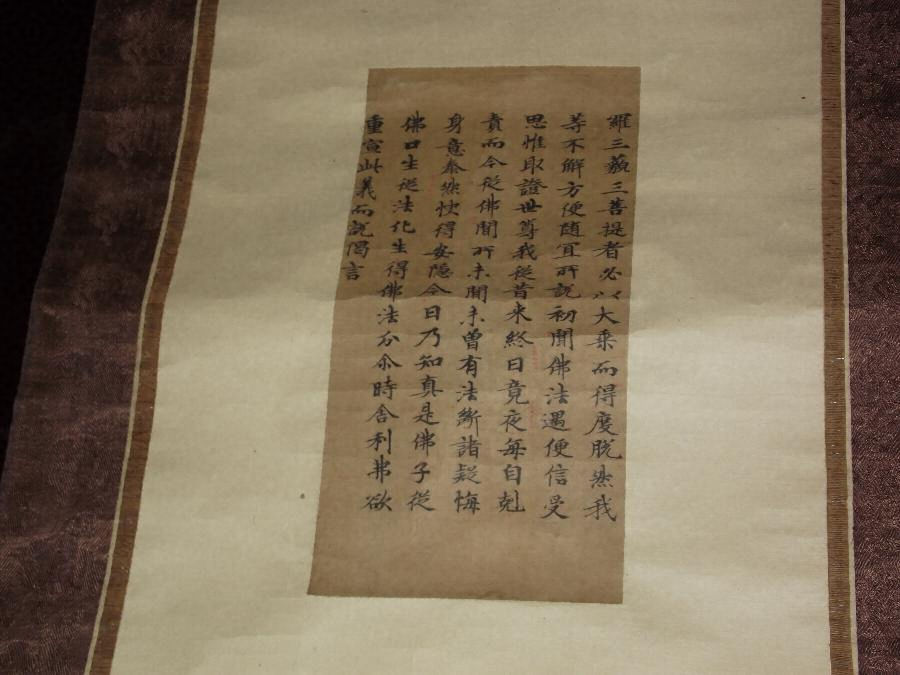 羅三藐三菩提者必以大乘而得度脫然我
等不解方便随宜所說初聞佛法遇便信受
思惟取證世尊我從昔來終日竟夜每自剋
責而今從佛聞所未聞未曾有法斷諸疑悔
身意泰然快得安隱今日乃知真是佛子從
佛口生從法化生得佛法分尒時舍利弗欲
重宣此義而說偈言